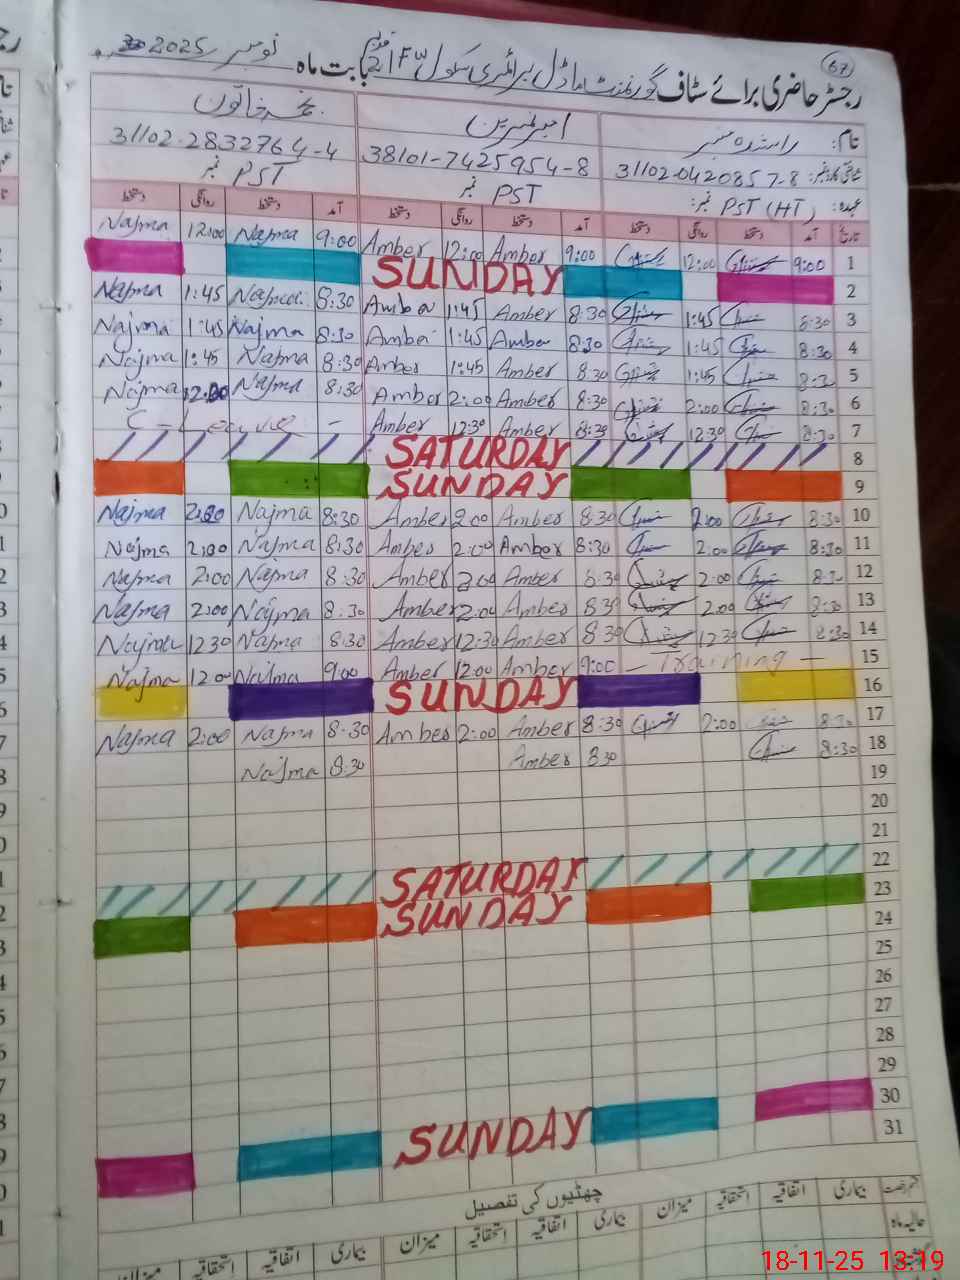 67
رجسٹر حاضری برائے سٹاف گورنمنٹ ماڈل پرائمری سکول 21F بابت ماہ نومبر 2025
نام: راشدہ امبرنسرین نجمہ خاتون
31102-0420857-8 38101-7425954-8 31102-2832764-4
عہدہ: PST (HT) نمبر: PST نمبر PST نمبر
تاریخ آمد دستخط روانگی دستخط آمد دستخط روانگی دستخط آمد دستخط روانگی دستخط
Najma 12:00 Najma 9:00 Amber 12:00 Amber 9:00 12:00 9:00 1
SUNDAY 2
Najma 1:45 Najma 8:30 Amber 1:45 Amber 8:30 1:45 8:30 3
Najma 1:45 Najma 8:30 Amber 1:45 Amber 8:30 1:45 8:30 4
Najma 1:45 Najma 8:30 Amber 1:45 Amber 8:30 1:45 8:30 5
Najma 2:00 Najma 8:30 Amber 2:00 Amber 8:30 2:00 8:30 6
C - Leave - Amber 12:30 Amber 8:30 12:30 8:30 7
SATURDAY 8
SUNDAY 9
Najma 2:00 Najma 8:30 Amber 2:00 Amber 8:30 2:00 8:30 10
Najma 2:00 Najma 8:30 Amber 2:00 Amber 8:30 2:00 8:30 11
Najma 2:00 Najma 8:30 Amber 2:00 Amber 8:30 2:00 8:30 12
Najma 2:00 Najma 8:30 Amber 2:00 Amber 8:30 2:00 8:30 13
Najma 12:30 Najma 8:30 Amber 12:30 Amber 8:30 12:30 8:30 14
Najma 12:00 Najma 9:00 Amber 12:00 Amber 9:00 - Training - 15
SUNDAY 16
Najma 2:00 Najma 8:30 Amber 2:00 Amber 8:30 2:00 8:30 17
Najma 8:30 Amber 8:30 8:30 18
19
20
21
SATURDAY 22
SUNDAY 23
24
25
26
27
28
29
SUNDAY 30
31
چھٹیوں کی تفصیل
قسم رخصت بیماری اتفاقیہ استحقاقیہ میزان بیماری اتفاقیہ استحقاقیہ میزان بیماری اتفاقیہ استحقاقیہ میزان
حالیہ ماہ
18-11-25 13:19